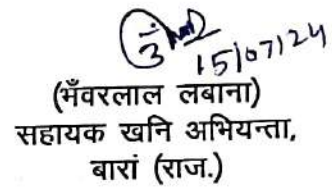 15/07/24
(भँवरलाल लबाना)
सहायक खनि अभियन्ता,
बारां (राज.)